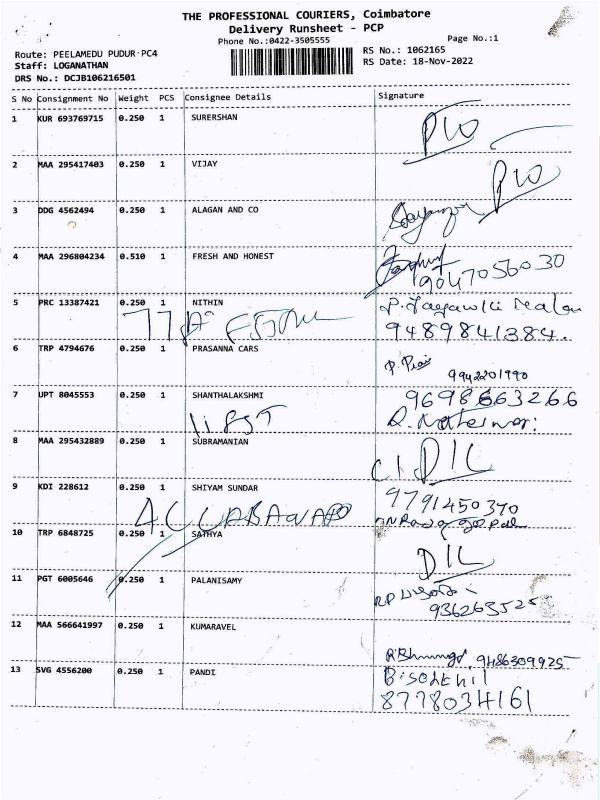 THE PROFESSIONAL COURIERS, Coimbatore
Delivery Runsheet - PCP
Phone No.:0422-3505555 Page No.:1
Route: PEELAMEDU PUDUR-PC4 RS No.: 1062165
Staff: LOGANATHAN RS Date: 18-Nov-2022
DRS No.: DCJB106216501
S No Consignment No Weight PCS Consignee Details Signature
1 KUR 693769715 0.250 1 SURERSHAN
2 MAA 295417403 0.250 1 VIJAY
3 DDG 4562494 0.250 1 ALAGAN AND CO
4 MAA 296804234 0.510 1 FRESH AND HONEST
9047056030
5 PRC 13387421 0.250 1 NITHIN
9489841384
6 TRP 4794676 0.250 1 PRASANNA CARS
9942201990
7 UPT 8045553 0.250 1 SHANTHALAKSHMI 9698663266
8 MAA 295432889 0.250 1 SUBRAMANIAN
D/L
9 KDI 228612 0.250 1 SHIYAM SUNDAR 9791450370
10 TRP 6848725 0.250 1 SATHYA
D/L
11 PGT 6005646 0.250 1 PALANISAMY
936263525
12 MAA 566641997 0.250 1 KUMARAVEL
9486309925
13 SVG 4556200 0.250 1 PANDI
8778034161